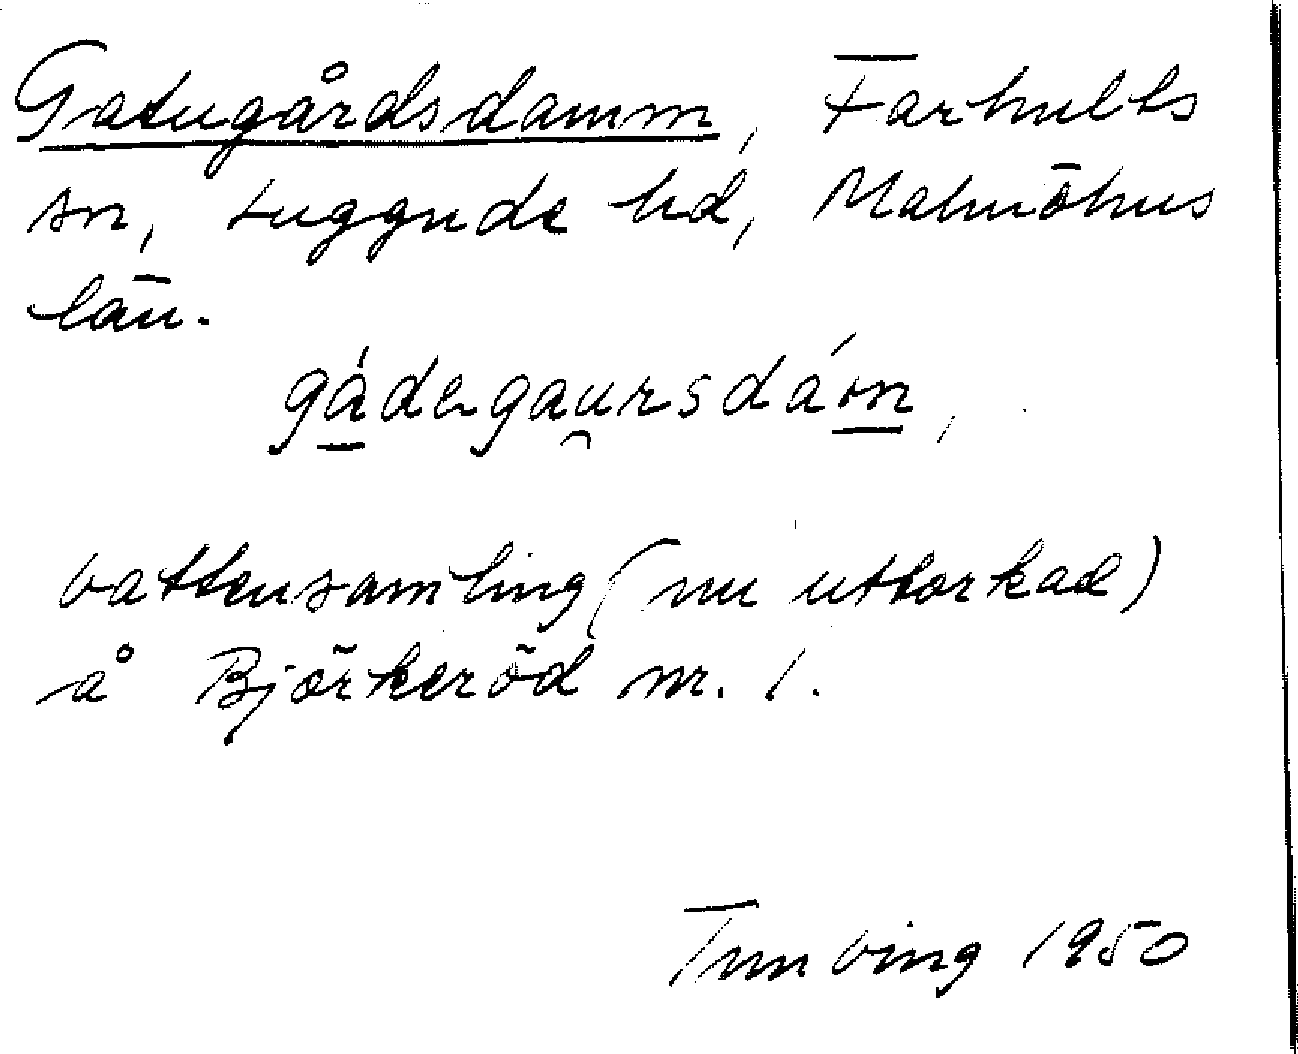 Gatugårdsdamm, Farhults
sn, Luggude hd, Malmöhus
län.
gádegau̯rsdám,
vattensamling (nu uttorkad)
å Björkeröd nr. 1.
Tunving 1950